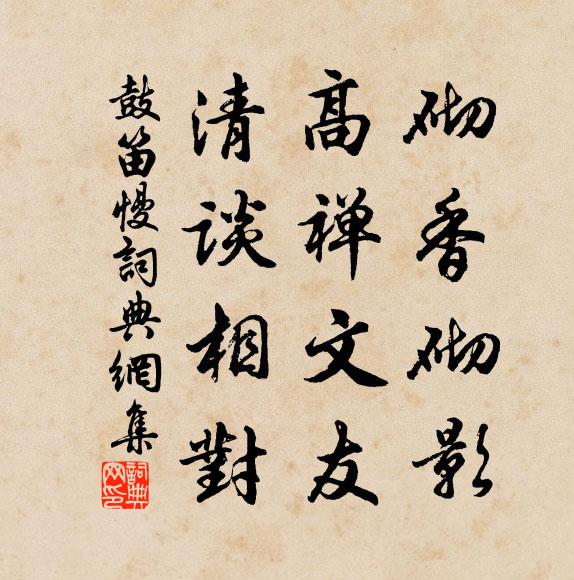 砌香砌影
高禅文友
清談相對
鼓笛慢詞典網集
詞典网印